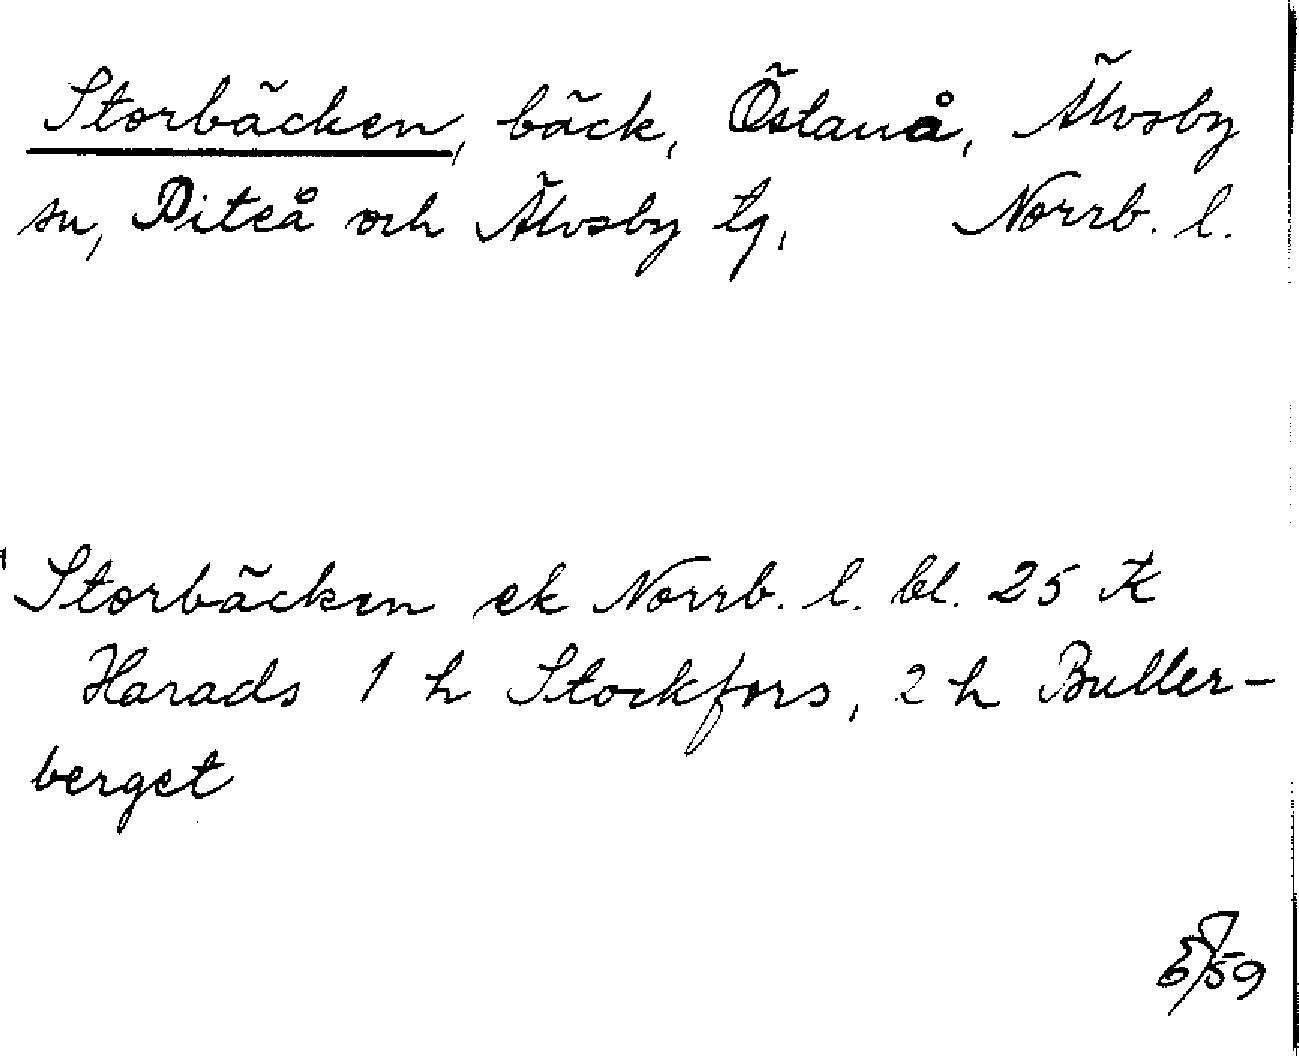 Storbäcken, bäck, Östanå, Älvsby
sn, Piteå och Älvsby tg, Norrb. l.
Storbäcken ek Norrb. l. bl. 25 K
Harads 1 h Stockfors, 2 h Buller-
berget